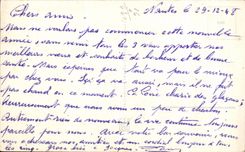 Nantes le 29-12-48
Chers amis
Nous ne voulons pas commencer cette nouvelle
année, sans vous faire les 3 vous apporter nos
meilleurs vœux et souhaits de bonheur et de bonne
santé. Nous espérons que tout va pour le mieux
par chez vous. Ici ça va aussi, mais il ne fait
pas chaud en ce moment. La Loire charrie des glaçons
heureusement que nous avons un peu de charbon.
Autrement rien de nouveau, la vie continue toujours
pareille pour nous. avec notre bon souvenir, nous
vous adressons nos amitiés et un cordial bonjour à tous
les cinq. Gros